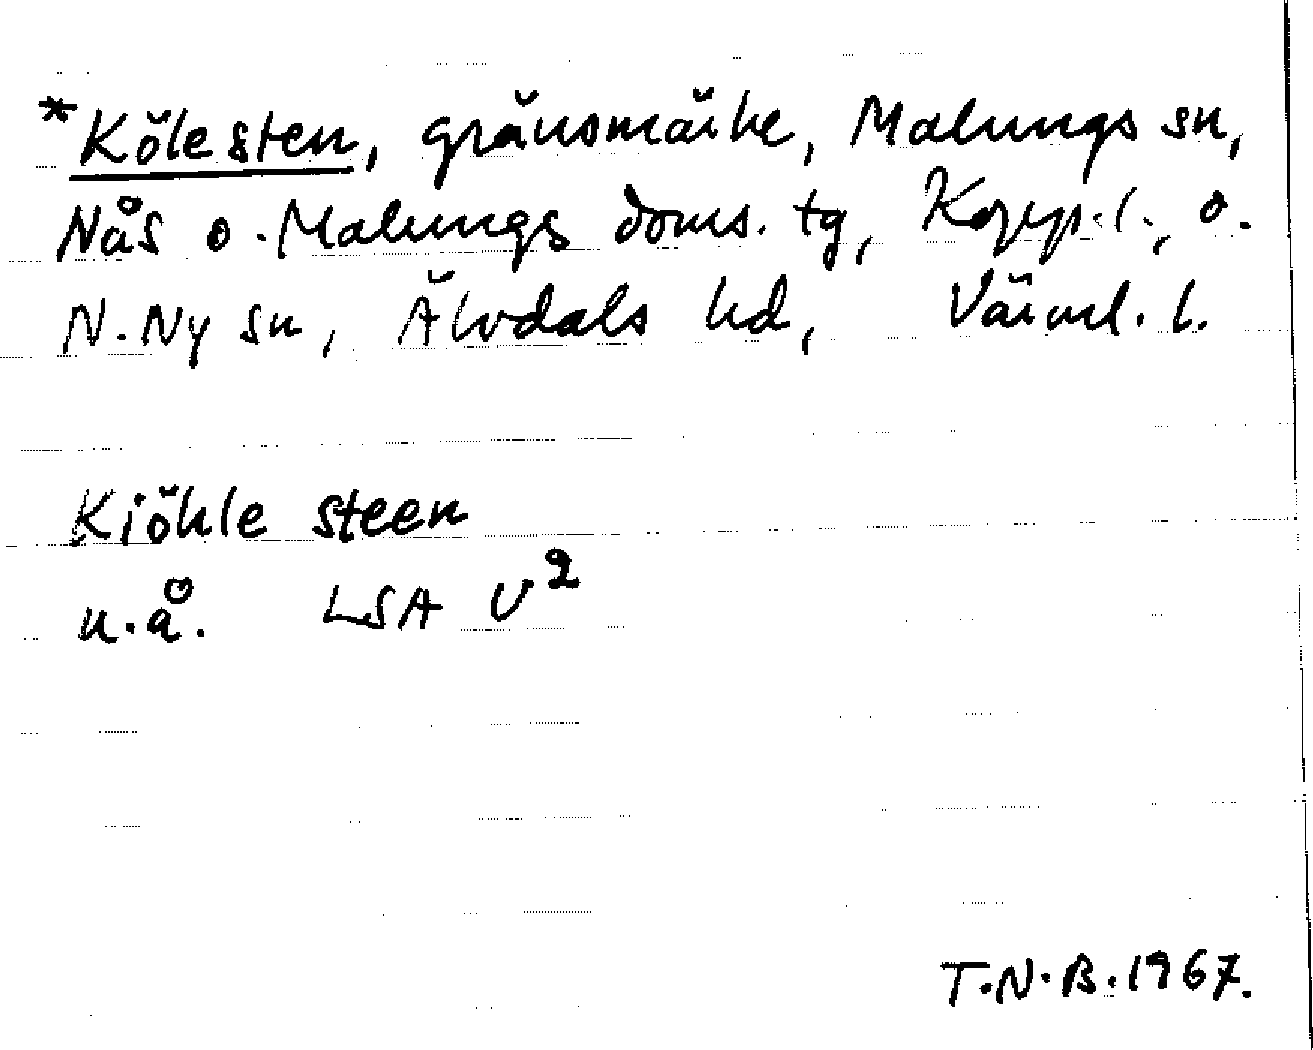 *Kölesten, gränsmärke, Malungs sn,
Nås o. Malungs doms. tg, Kopp. l., o.
N. Ny sn, Älvdals hd, Värml. l.
Kiöhle steen
u. å. LSA U²
T.N.B. 1967.